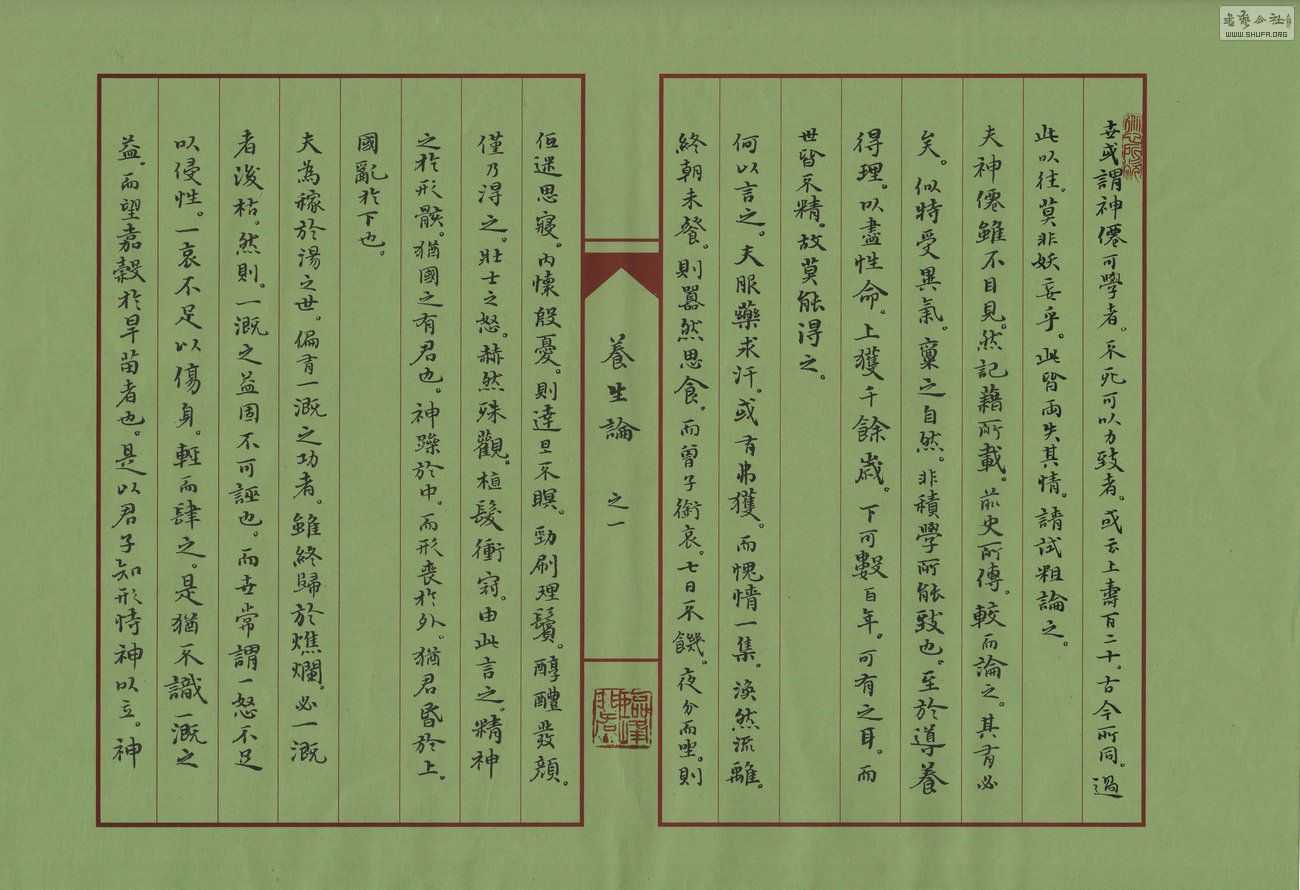 世或謂神僊可學者。不死可以力致者。或云上壽百二十。古今所同。過
此以往。莫非妖妄乎。此皆兩失其情。請試粗論之。
夫神僊雖不目見。然記藉所載。前史所傳。較而論之。其有必
矣。似特受異氣。稟之自然。非積學所能致也。至於導養
得理。以盡性命。上獲千餘歲。下可數百年。可有之耳。而
世皆不精。故莫能得之。
何以言之。夫服藥求汗。或有弗獲。而愧情一集。渙然流離。
終朝未餐。則囂然思食。而曾子銜哀。七日不饑。夜分而坐。則
養生論 之一
低迷思寢。內懷殷憂。則達旦不瞑。勁刷理鬢。醇醴發顏。
僅乃得之。壯士之怒。赫然殊觀。植髮衝冠。由此言之。精神
之於形骸。猶國之有君也。神躁於中。而形喪於外。猶君昏於上。
國亂於下也。
夫為稼於湯之世。偏有一溉之功者。雖終歸於燋爛。必一溉
者後枯。然則。一溉之益固不可誣也。而世常謂一怒不足
以侵性。一哀不足以傷身。輕而肆之。是猶不識一溉之
益。而望嘉穀於旱苗者也。是以君子知形恃神以立。神
書藝公社
WWW.SHUFA.ORG